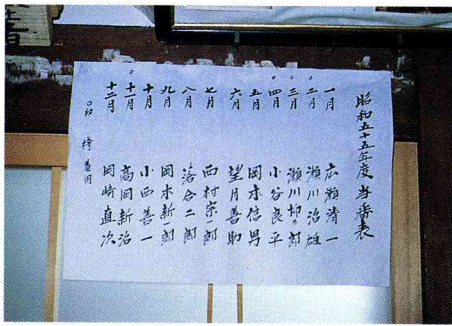 昭和五十五年度 当番表
一月 広瀬清一
〇二月 瀬川治雄
〇三月 瀬川柳一郎
〇四月 小谷良平
五月 岡本信男
六月 望月善助
七月 西村宗一郎
八月 落合二郎
九月 岡本新一郎
十月 小西善一
〇十一月 高岡新治
十二月 岡崎直次
〇印